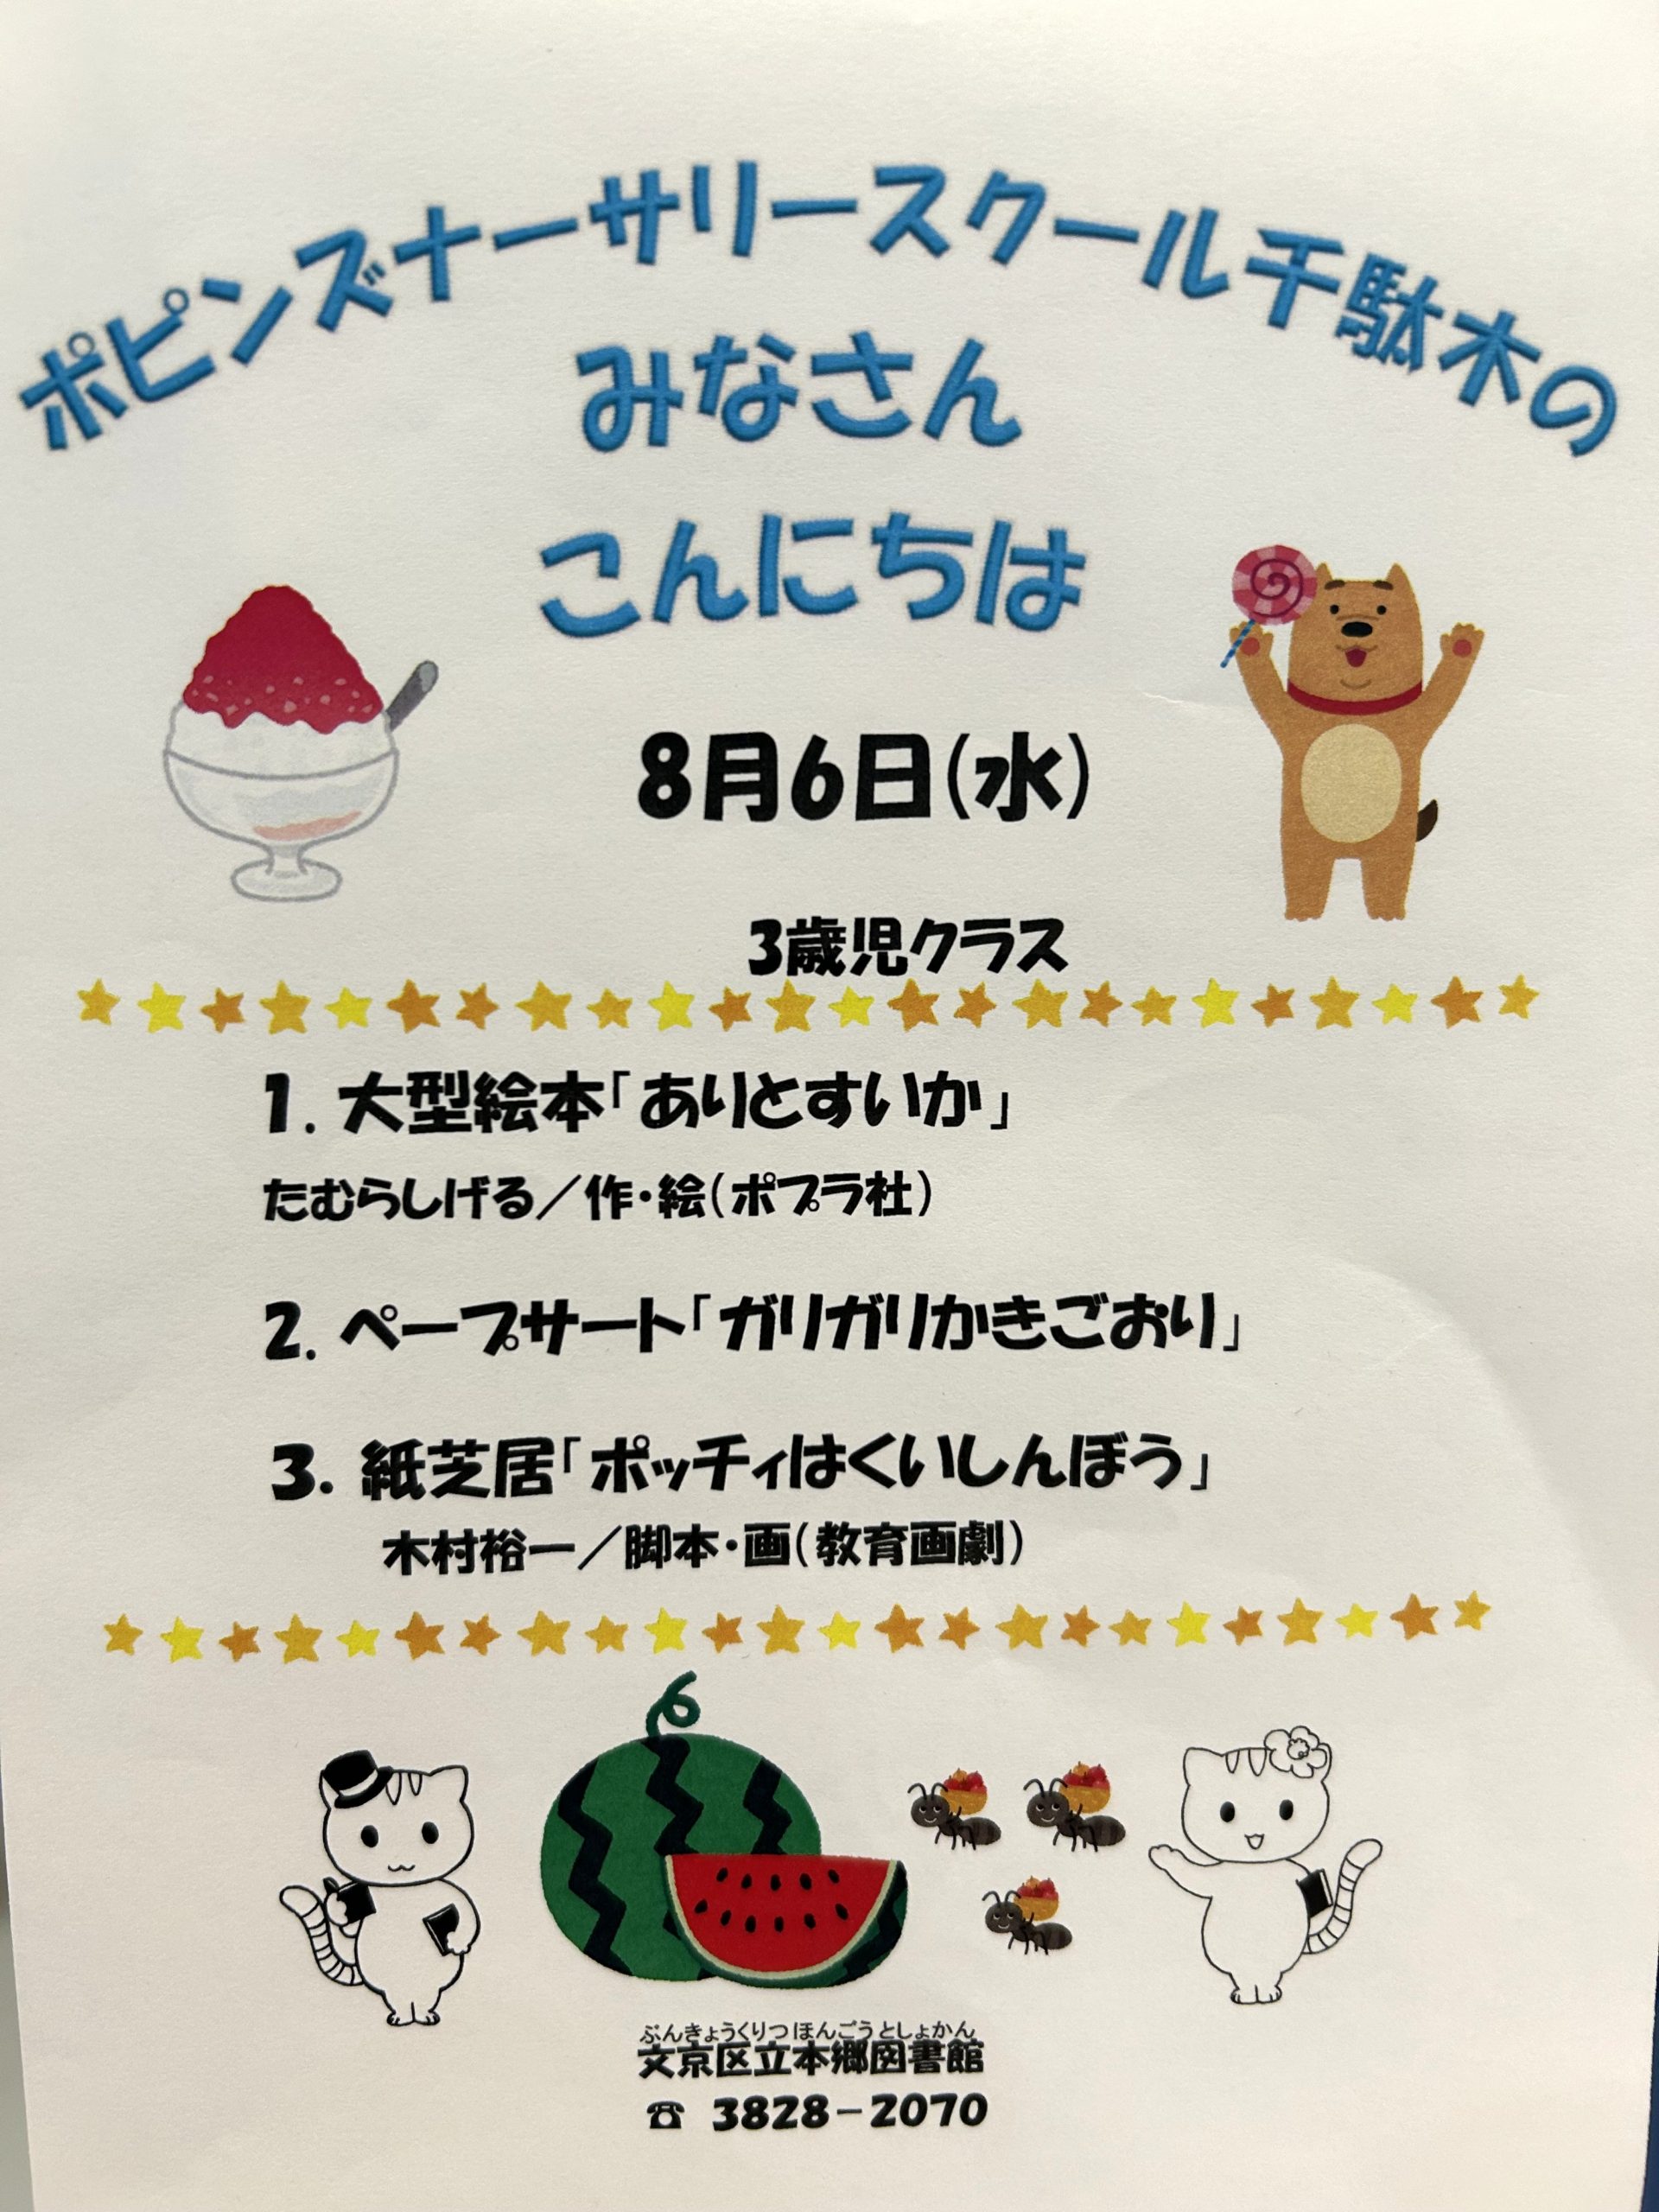 ポピンズナーサリースクール千駄木の
みなさん
こんにちは
8月6日(水)
3歳児クラス
1. 大型絵本「ありとすいか」
たむらしげる／作・絵(ポプラ社)
2. ペープサート「ガリガリかきごおり」
3. 紙芝居「ポッチィはくいしんぼう」
木村裕一／脚本・画(教育画劇)
ぶんきょうくりつ ほんごう としょかん
文京区立本郷図書館
☎ 3828－2070